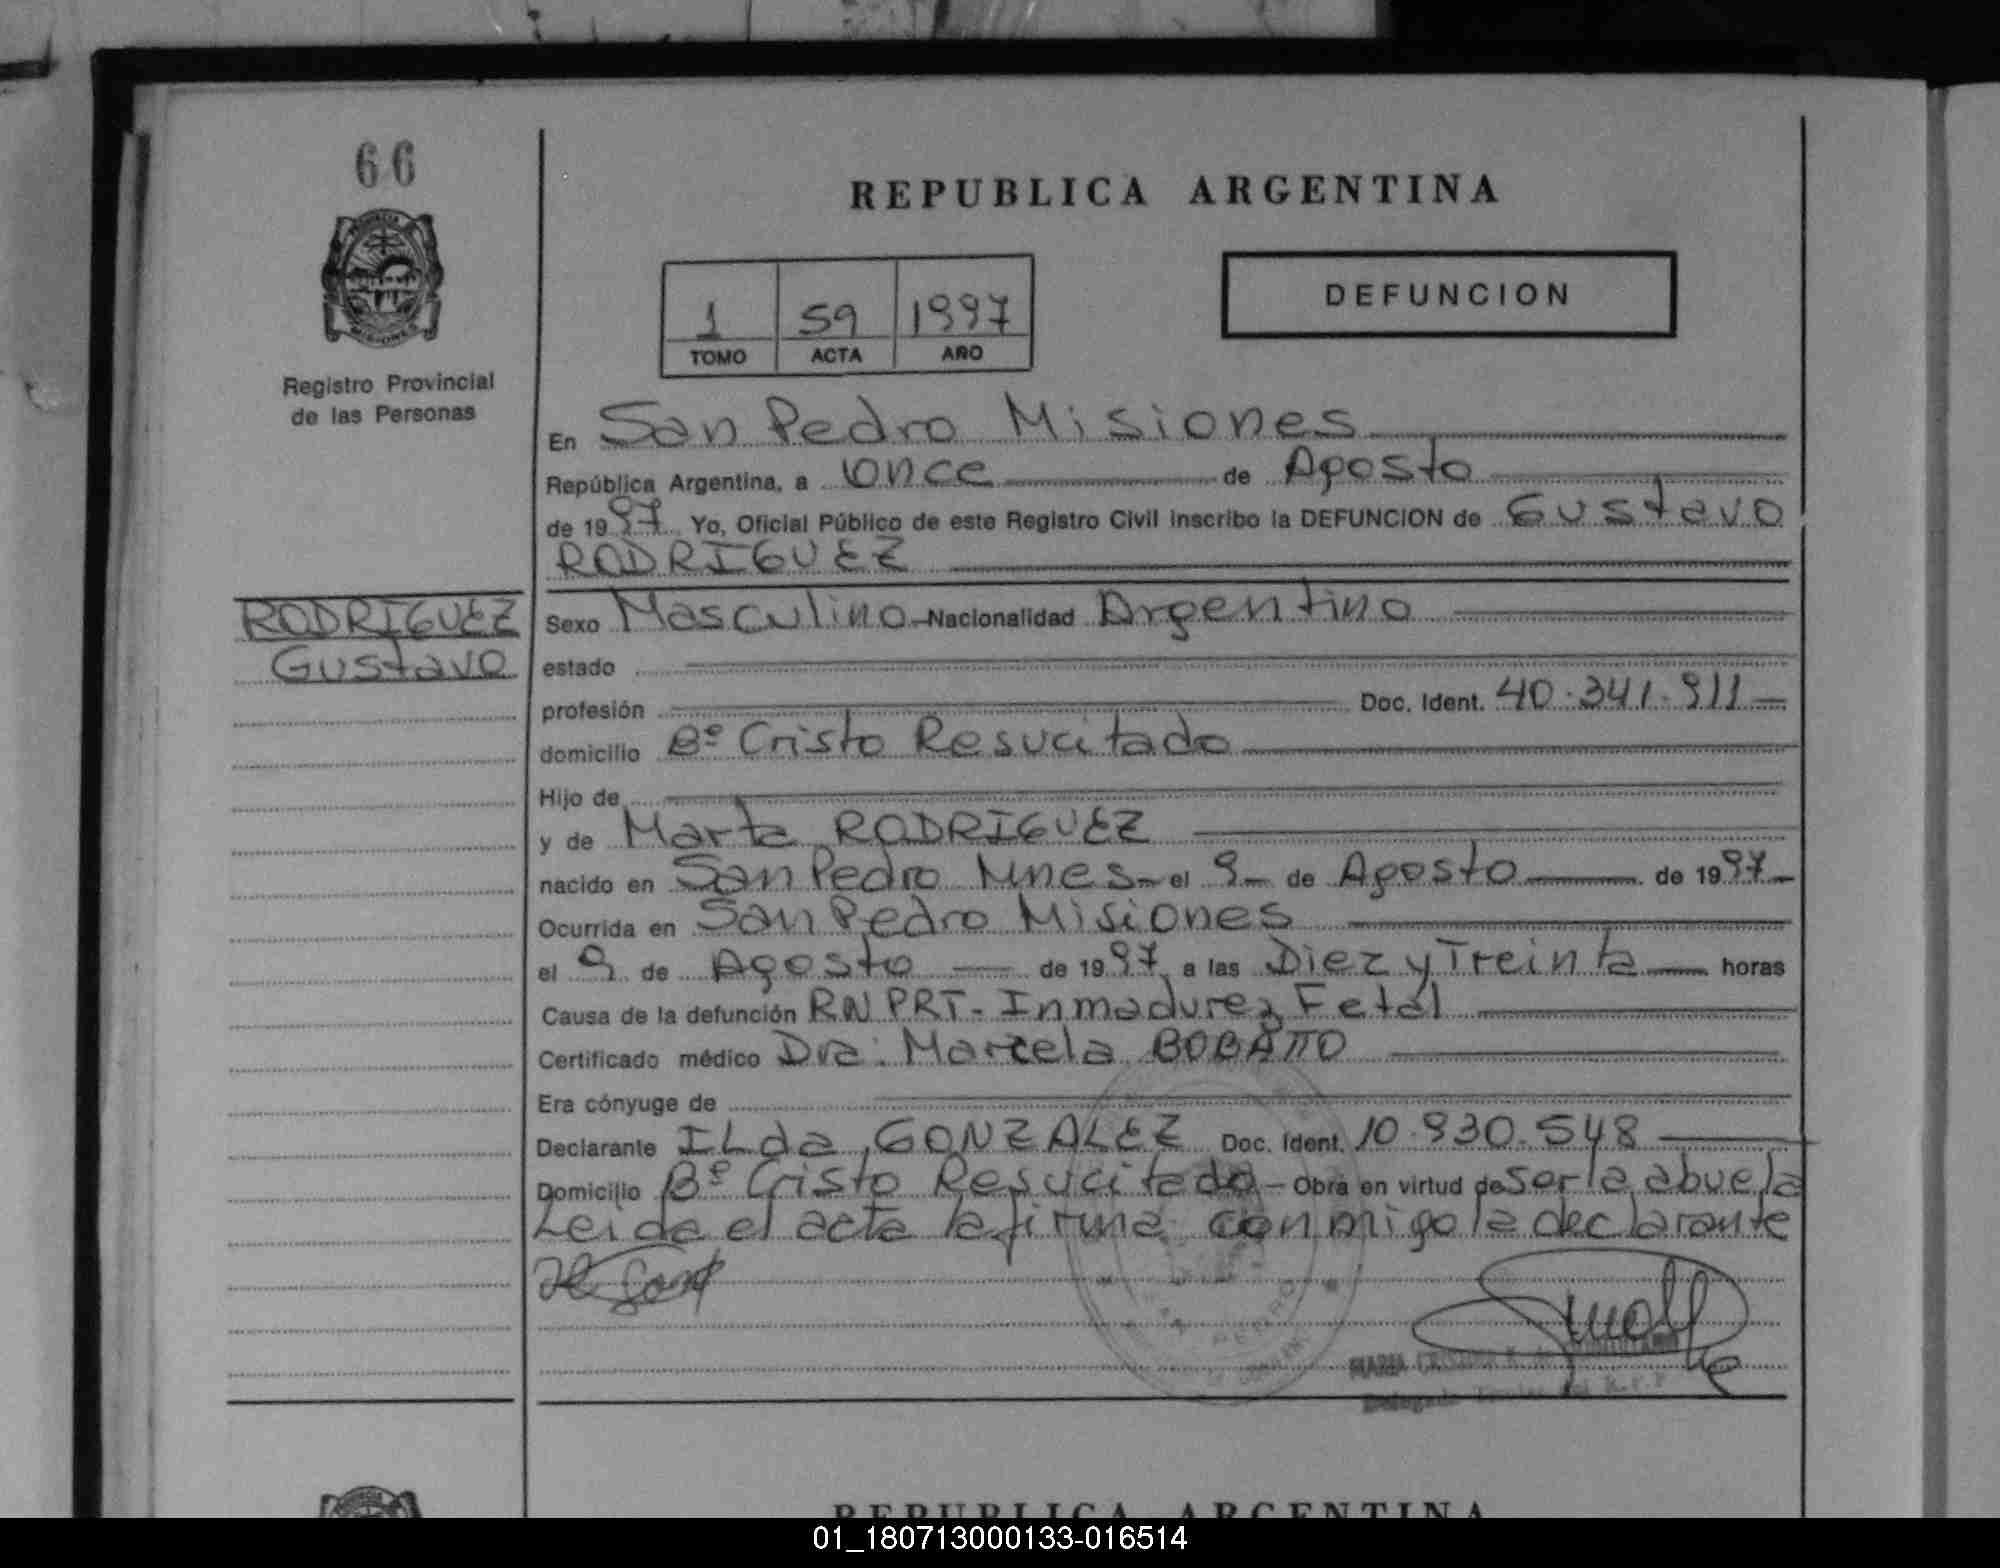 66
REPUBLICA ARGENTINA
DEFUNCION
1 59 1997
TOMO ACTA AÑO
MISIONES
Registro Provincial
de las Personas
En San Pedro Misiones
República Argentina, a once de Agosto
de 1997 Yo, Oficial Público de este Registro Civil inscribo la DEFUNCION de Gustavo
RODRIGUEZ
RODRIGUEZ
Gustavo
Sexo Masculino Nacionalidad Argentino
estado
profesión Doc. Ident. 40.341.911
domicilio Bº Cristo Resucitado
Hijo de
y de Marta RODRIGUEZ
nacido en San Pedro Mnes el 9 de Agosto de 1997
Ocurrida en San Pedro Misiones
el 9 de Agosto de 1997 a las Diez y Treinta horas
Causa de la defunción RN PRT - Inmadurez Fetal
Certificado médico Dra: Marcela BOBATTO
Era cónyuge de
Declarante ILda GONZALEZ Doc. Ident. 10.930.548
Domicilio Bº Cristo Resucitado - Obra en virtud de ser la abuela
Leida el acta la firma conmigo la declarante
MARIA CRISTINA
REPUBLICA ARGENTINA
01_180713000133-016514